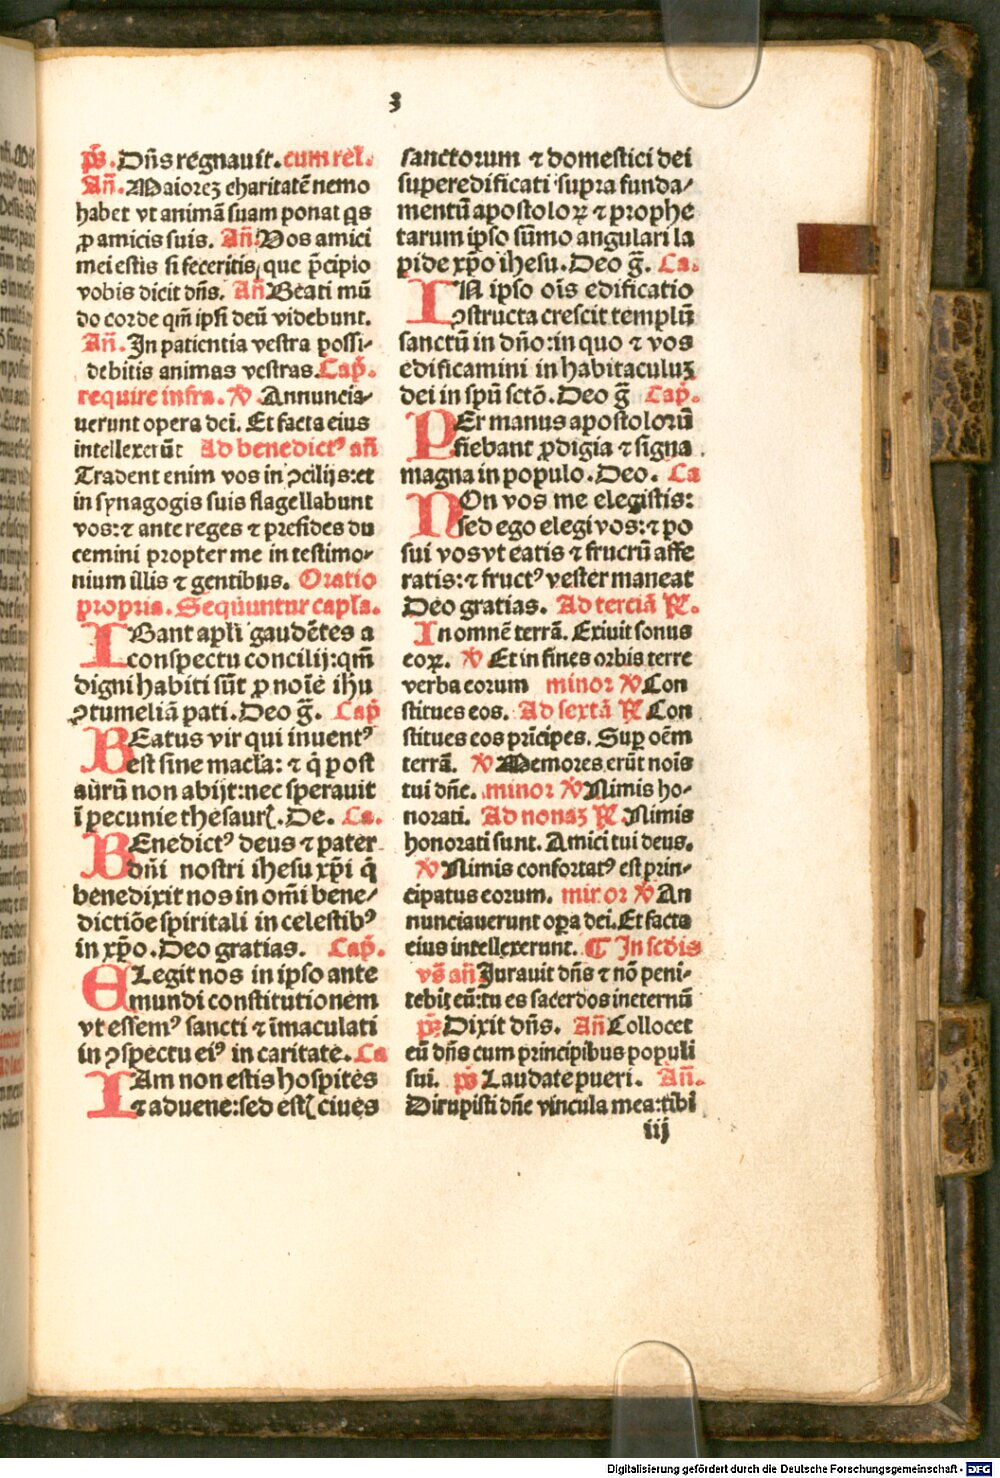 3
ps̄. Dn̄s regnauit. cum rel̄.
An̄. Maiorez charitatē nemo
habet vt animā suam ponat q̄s
ꝓ amicis suis. An̄. Vos amici
mei estis si feceritis, que p̄cipio
vobis dicit dn̄s. An̄ Beati mū
do corde qm̄ ipsi deū videbunt.
An̄. In patientia vestra possi-
debitis animas vestras. Cap̄.
require infra. ℣. Annuncia-
uerunt opera dei. Et facta eius
intellexerūt Ad benedictꝰ an̄
Tradent enim vos in ꝯcilijs: et
in synagogis suis flagellabunt
vos: ⁊ ante reges ⁊ presides du
cemini propter me in testimo-
nium illis ⁊ gentibus. Oratio
propria. Sequuntur capl̄a.
IBant apl̄i gaudētes a
conspectu concilij: qm̄
digni habiti sūt ꝓ noīe ihū
ꝯtumeliā pati. Deo ḡ. Cap̄
BEatus vir qui inuentꝰ
est sine macl̄a: ⁊ q̄ post
aurū non abijt: nec sperauit
ī pecunie thesaurꝭ. De. Ca.
BEnedictꝰ deus ⁊ pater
dn̄i nostri ihesu xp̄i q̄
benedixit nos in om̄i bene-
dictiōe spiritali in celestibꝰ
in xp̄o. Deo gratias. Cap̄.
ELegit nos in ipso ante
mundi constitutionem
vt essemꝰ sancti ⁊ īmaculati
in ꝯspectu eiꝰ in caritate. Ca
IAm non estis hospites
⁊ aduene: sed estꝭ ciues
sanctorum ⁊ domestici dei
superedificati supra funda-
mentū apostoloꝝ ⁊ prophe
tarum ipso sūmo angulari la
pide xp̄o ihesu. Deo ḡ. Ca.
IN ipso oīs edificatio
ꝯstructa crescit templū
sanctū in dn̄o: in quo ⁊ vos
edificamini in habitaculuz
dei in spū sctō. Deo ḡ Cap̄.
PEr manus apostolorū
fiebant ꝓdigia ⁊ signa
magna in populo. Deo. Ca
NOn vos me elegistis:
sed ego elegi vos: ⁊ po
sui vos vt eatis ⁊ fructū affe
ratis: ⁊ fructꝰ vester maneat
Deo gratias. Ad terciā ℟.
In omnē terrā. Exiuit sonus
eoꝝ. ℣ Et in fines orbis terre
verba eorum minor ℣ Con
stitues eos. Ad sextā ℟ Con
stitues eos prīcipes. Suꝑ oēm
terrā. ℣ Memores erūt noīs
tui dn̄e. minor ℣ Nimis ho-
norati. Ad nonaz ℟. Nimis
honorati sunt. Amici tui deus.
℣ Nimis confortatꝰ est prin-
cipatus eorum. minor ℣ An
nunciauerunt oꝑa dei. Et facta
eius intellexerunt. ¶ In secūdis
vs̄ an̄ Jurauit dn̄s ⁊ nō peni-
tebit eū: tu es sacerdos ineternū
ps̄ Dixit dn̄s. An̄ Collocet
eū dn̄s cum principibus populi
sui. ps̄ Laudate pueri. An̄.
Dirupisti dn̄e vincula mea: tibi
iij
Digitalisierung gefördert durch die Deutsche Forschungsgemeinschaft - DFG